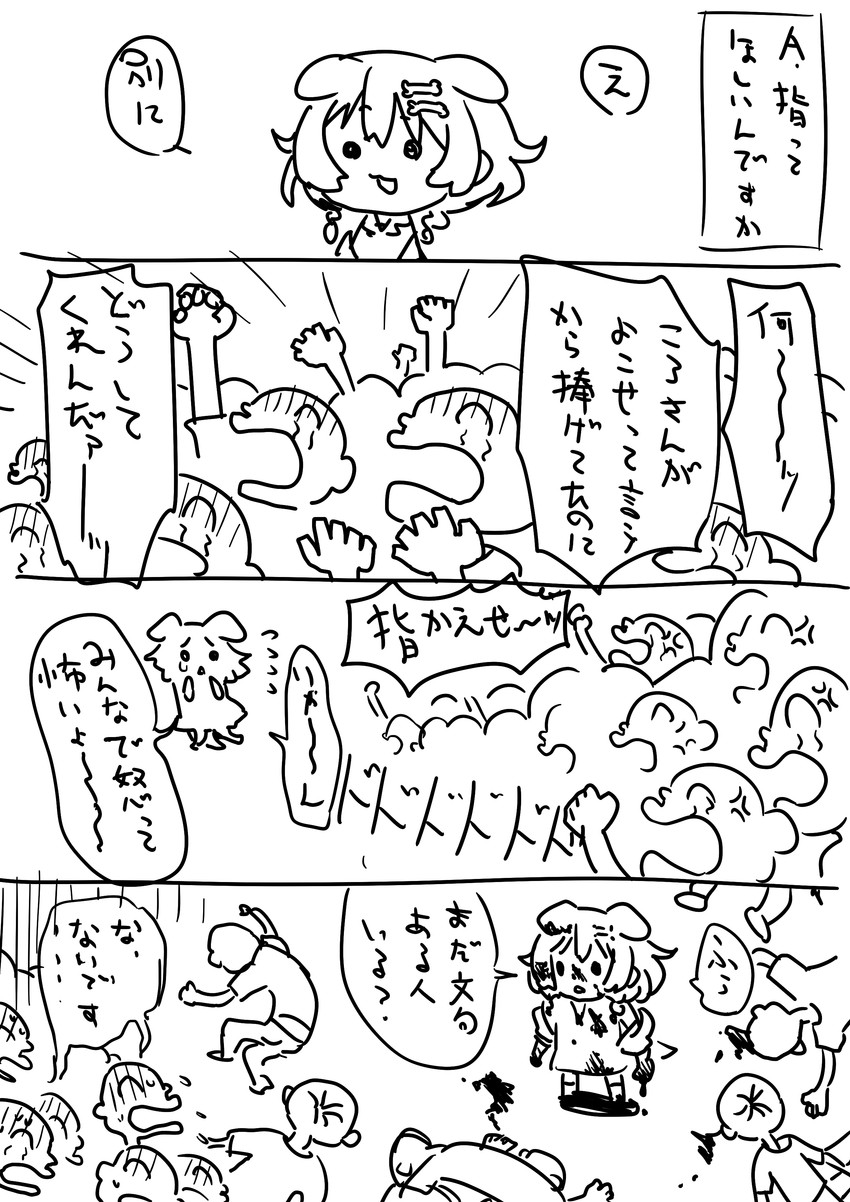 A.指って
ほしいんですか
え
別に
何〜〜〜ッ
ころさんが
よこせって言う
から捧げてたのに
どうして
くれんだァー
指かえせ〜ッ
ひぃ〜〜ん
ドドドドド
みんなで怒って
怖いよ〜〜〜
ふぅ
まだ文句
ある人
いる?
な、
ないです…